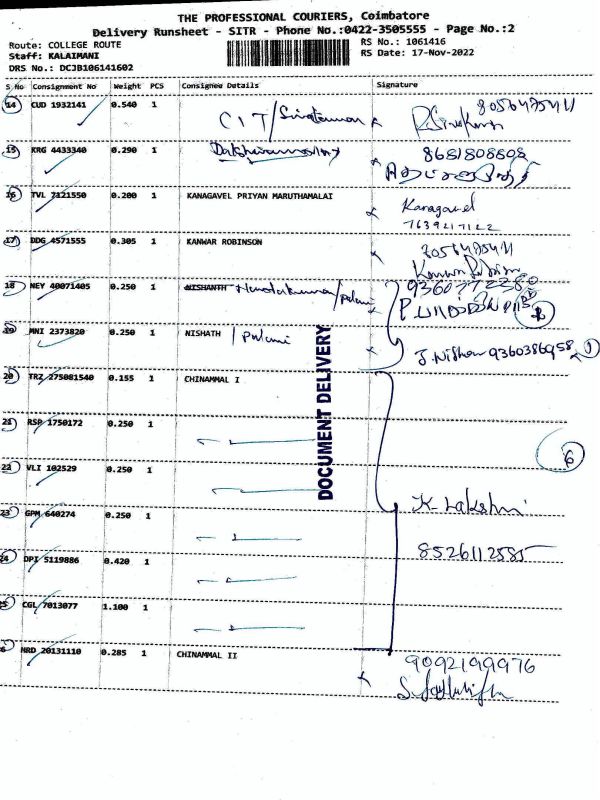 THE PROFESSIONAL COURIERS, Coimbatore
Delivery Runsheet - SITR - Phone No.:0422-3505555 - Page No.:2
Route: COLLEGE ROUTE RS No.: 1061416
Staff: KALAIMANI RS Date: 17-Nov-2022
DRS No.: DCJB106141602
S No Consignment No Weight PCS Consignee Details Signature
14 CUD 1932141 0.540 1 CIT/ 8056475411
15 KRG 4433340 0.290 1 8681808608
16 TVL 7121550 0.200 1 KANAGAVEL PRIYAN MARUTHAMALAI Kanagavel
7639217122
17 DDG 4571555 0.305 1 KANWAR ROBINSON 7056475411
18 NEY 40071405 0.250 1 NISHANTH
19 MNI 2373820 0.250 1 NISHATH / Palani J. Nishan 9360386958
20 TRZ 275081540 0.155 1 CHINAMMAL I
21 RSP 1750172 0.250 1
22 VLI 102529 0.250 1
6
23 GPM 640274 0.250 1 K. Lakshmi
24 DPI 5119886 0.420 1 8526112585
25 CGL 7013077 1.100 1
NRD 20131110 0.285 1 CHINNAMMAL II 9092199976
DOCUMENT DELIVERY